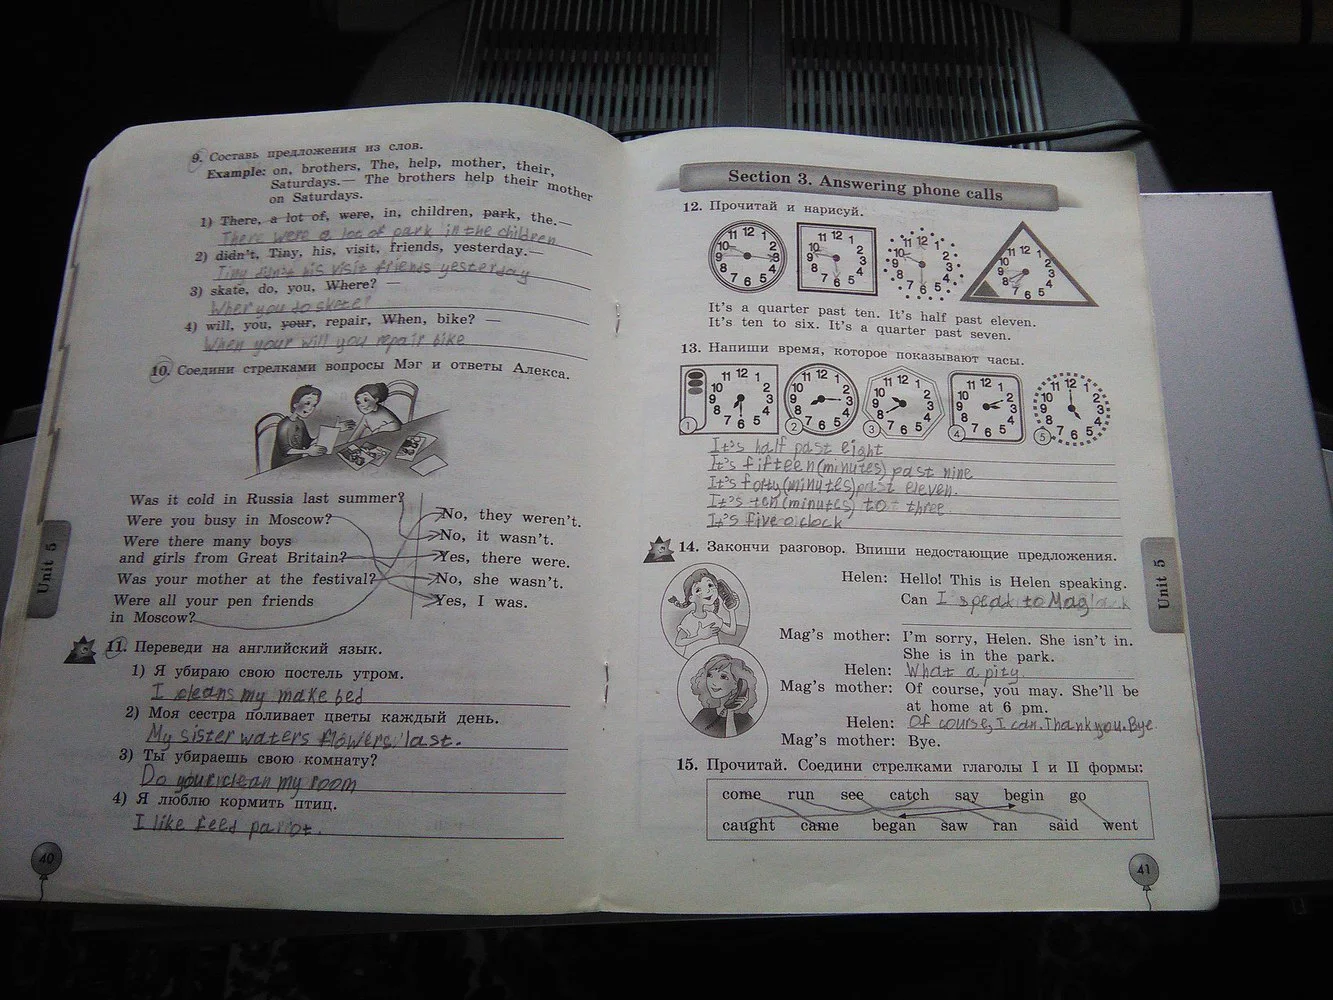 9. Составь предложения из слов.
Example: on, brothers, The, help, mother, their,
Saturdays.— The brothers help their mother
on Saturdays.
1) There, a lot of, were, in, children, park, the.—
There were a lot of park in the children
2) didn't, Tiny, his, visit, friends, yesterday.—
Tiny didn't his visit friends yesterday
3) skate, do, you, Where? —
Wher you to skate?
4) will, you, your, repair, When, bike? —
When your will you repair bike
10. Соедини стрелками вопросы Мэг и ответы Алекса.
Was it cold in Russia last summer?
Were you busy in Moscow?
Were there many boys
and girls from Great Britain?
Was your mother at the festival?
Were all your pen friends
in Moscow?
No, they weren't.
No, it wasn't.
Yes, there were.
No, she wasn't.
Yes, I was.
11. Переведи на английский язык.
1) Я убираю свою постель утром.
I cleans my make bed
2) Моя сестра поливает цветы каждый день.
My sister waters flowers last.
3) Ты убираешь свою комнату?
Do your clean my room
4) Я люблю кормить птиц.
I like feed parrot.
Unit 5
40
Section 3. Answering phone calls
12. Прочитай и нарисуй.
11 12 1 10 9 3 8 7 6 5 4
11 12 1 10 2 9 3 8 7 6 5 4
11 12 1 10 2 9 3 8 7 6 5 4
11 12 1 10 2 9 3 8 7 6 5 4
It's a quarter past ten. It's half past eleven.
It's ten to six. It's a quarter past seven.
13. Напиши время, которое показывают часы.
11 12 1 10 2 9 3 8 7 6 5 4
11 12 1 10 2 9 3 8 7 6 5 4
11 12 1 10 2 9 3 8 7 6 5 4
11 12 1 10 2 9 3 8 7 6 5 4
11 12 1 10 2 9 3 8 7 6 5 4
1 2 3 4 5
It's half past eight
It's fifteen (minutes) past nine
It's forty (minutes) past eleven.
It's ten (minutes) to three
It's five o'clock
14. Закончи разговор. Впиши недостающие предложения.
Helen: Hello! This is Helen speaking.
Can I speak to Mag
Mag's mother: I'm sorry, Helen. She isn't in.
She is in the park.
Helen: What a pity
Mag's mother: Of course, you may. She'll be
at home at 6 pm.
Helen: Of course, I can. Thank you. Bye
Mag's mother: Bye.
15. Прочитай. Соедини стрелками глаголы I и II формы:
come run see catch say begin go
caught came began saw ran said went
Unit 5
41